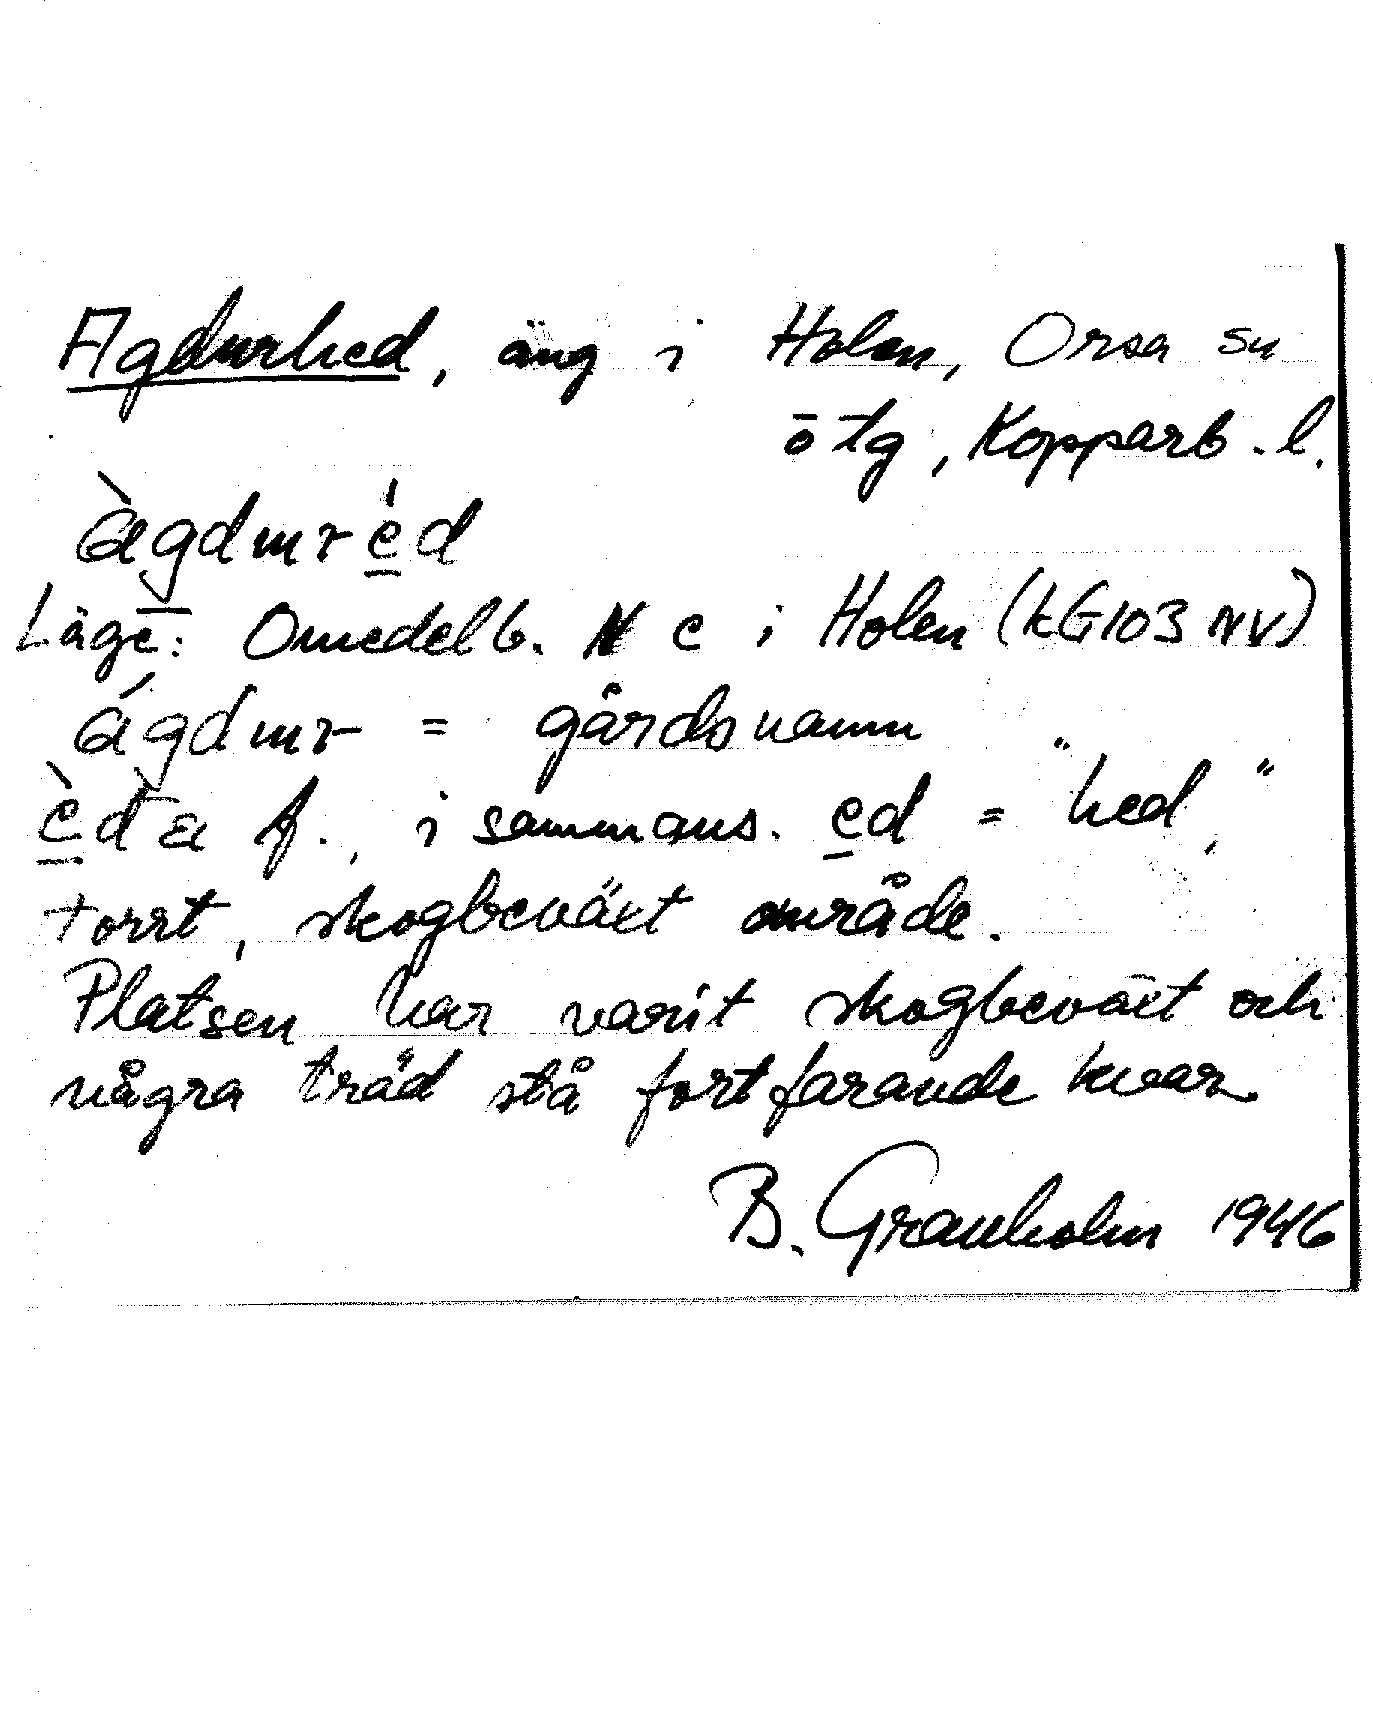 Agdurhed, äng i Holen, Orsa sn
ötg, Kopparb. l.
àgdɯréd
Läge: Omedelb. N e i Holen (kG103 NV)
ágdɯr = gårdsnamn
èda f., i sammans. ed = "hed,"
torrt, skogbeväxt område.
Platsen har varit skogbeväxt och
några träd stå fortfarande kvar.
B. Granholm 1946